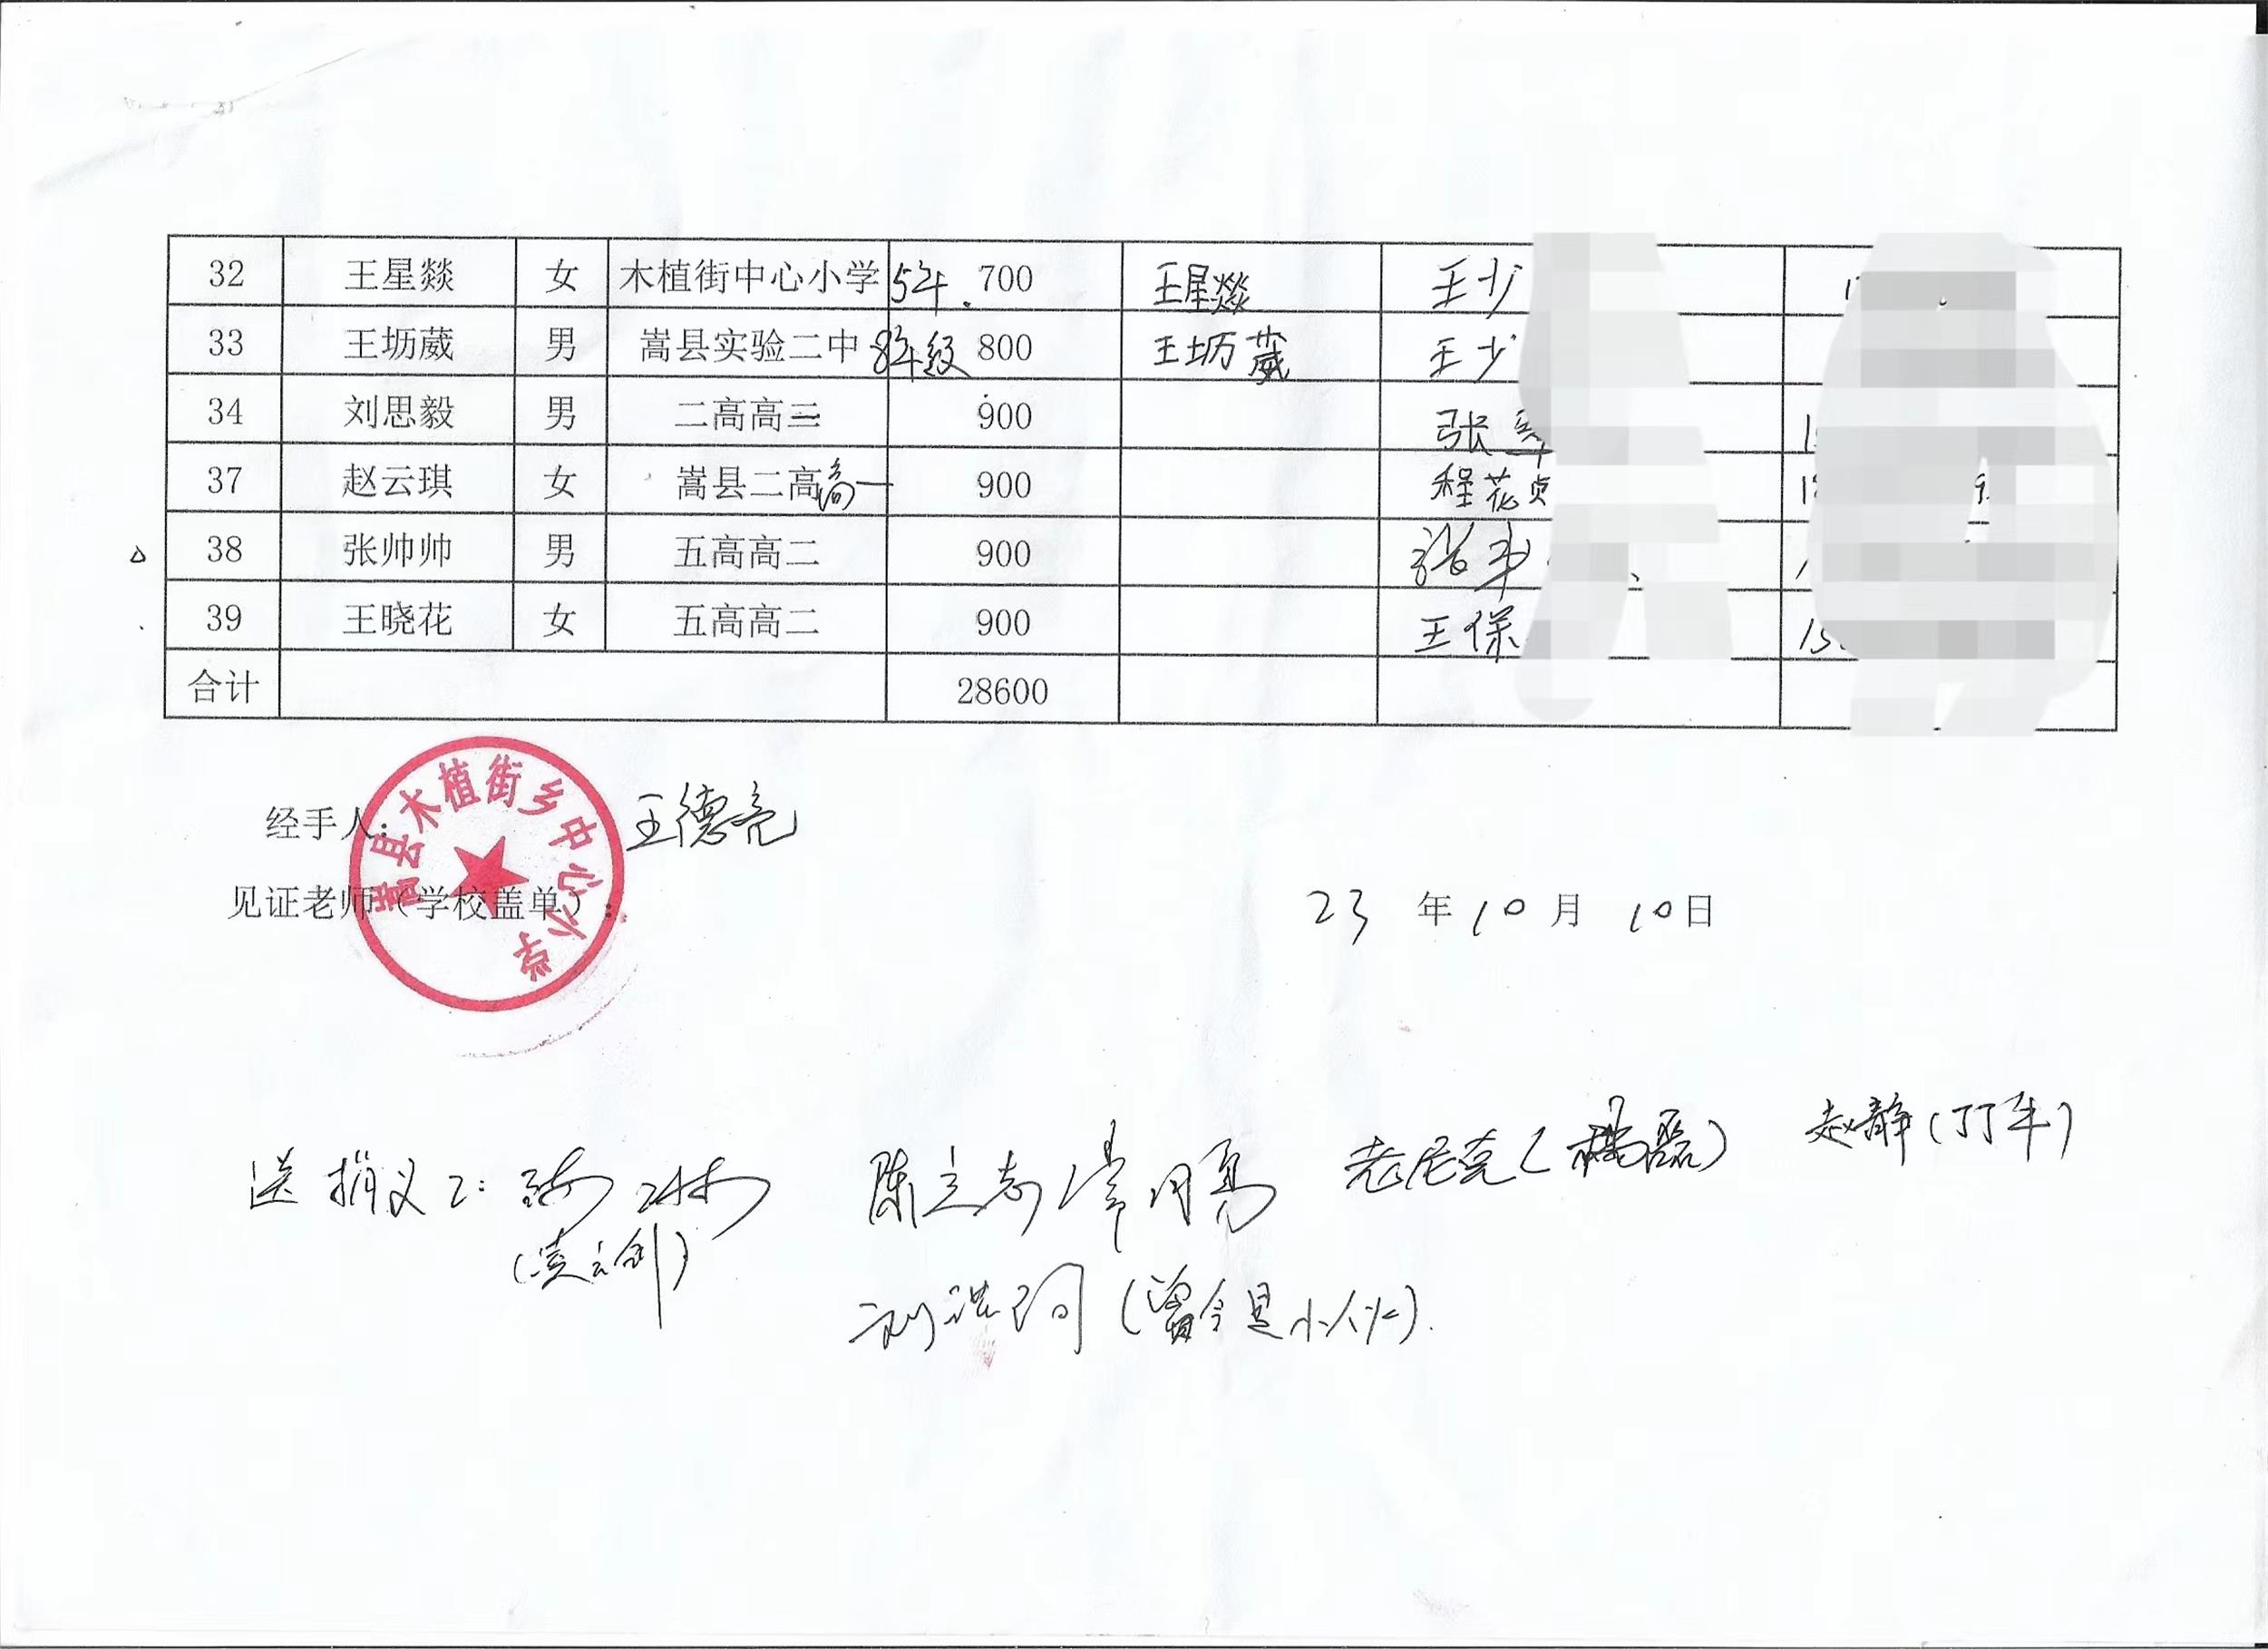 32 王星燚 女 木植街中心小学 5年. 700 王星燚 王少
33 王坜葳 男 嵩县实验二中 8年级 800 王坜葳 王少
34 刘思毅 男 二高高三 900 张
37 赵云琪 女 嵩县二高高一 900 程花贞
38 张帅帅 男 五高高二 900
39 王晓花 女 五高高二 900 王保
合计 28600
经手人: 王德亮
嵩县木植街乡中心小学
见证老师（学校盖单）:
23 年 10 月 10日
赵静(丁丁车)
送捐义工: 陈立志 常明亮 老尼克(杨磊)
(凌云剑)
(曾今是小伙).